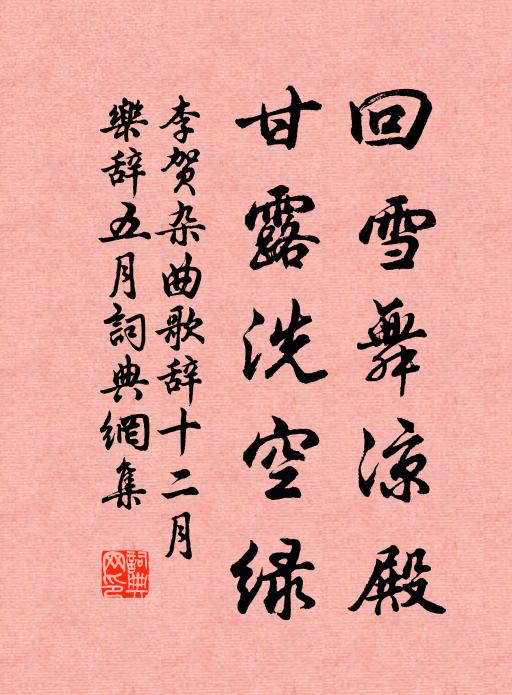 回雪舞涼殿
甘露洗空緑
李贺杂曲歌辞十二月
樂辞五月詞典網集
詞典网印